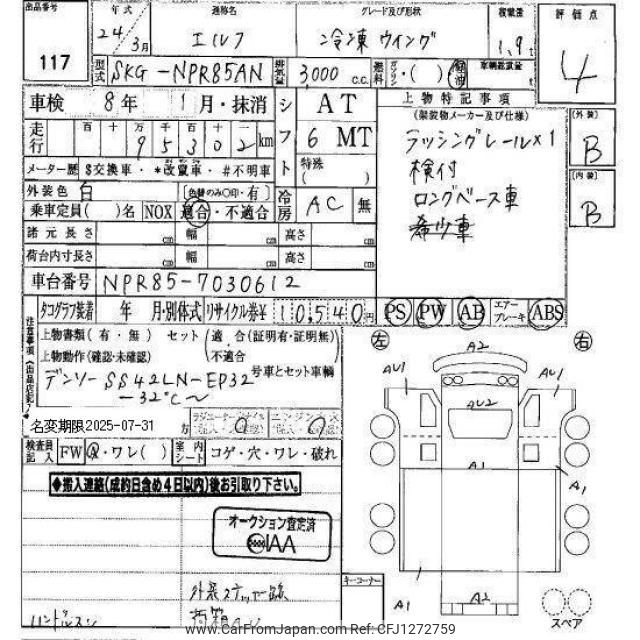 出品番号
117
年式
24年3月
通称名
エルフ
グレード及び形状
冷凍ウイング
積載量
1.9t
評価点
4
型式
SKG-NPR85AN
排気量
3,000 c.c.
燃料
ガソリン・( ) 軽油
車輌総重量
車検 8年 1月・抹消
走行 百 十 万 千 百 十
95302km
メーター歴 $交換車・*改ざん車・#不明車
シフト
AT
6 MT
特殊
( )
上物特記事項
(架装物メーカー及び仕様)
ラッシングレール×1
検付
ロングベース車
希少車
[外装]
B
[内装]
B
外装色 白
[色替のみ○印・有]
乗車定員( )名 NOX 適合・不適合
冷房 AC 無
諸元長さ cm 幅 cm 高さ cm
荷台内寸長さ cm 幅 cm 高さ cm
車台番号 NPR85-7030612
タコグラフ装着 年 月・別体式 リサイクル券¥ 10,540円
PS PW AB エアーブレーキ ABS
注意事項(出品店記入)
上物書類(有・無) セット
上物動作(確認・未確認)
適合(証明有・証明無)
不適合
号車とセット車輌
デンソーSS42LN-EP32
-32℃~
名変期限2025-07-31
検査員記入
FW
・ワレ( )
室内シート
コゲ・穴・ワレ・破れ
◆搬入連絡(成約日含め4日以内)後お引取り下さい。
オークション査定済
IAA
ハンドルスレ
キーコーナー
左
右
A2
AU1
AU1
AU2
A1
A1
A1
A2
スペア
www.CarFromJapan.com | Ref: CFJ1272759